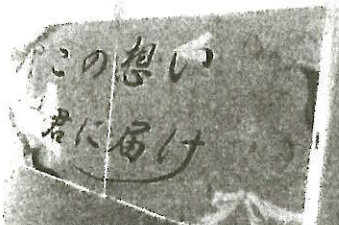 この想い
君に届け